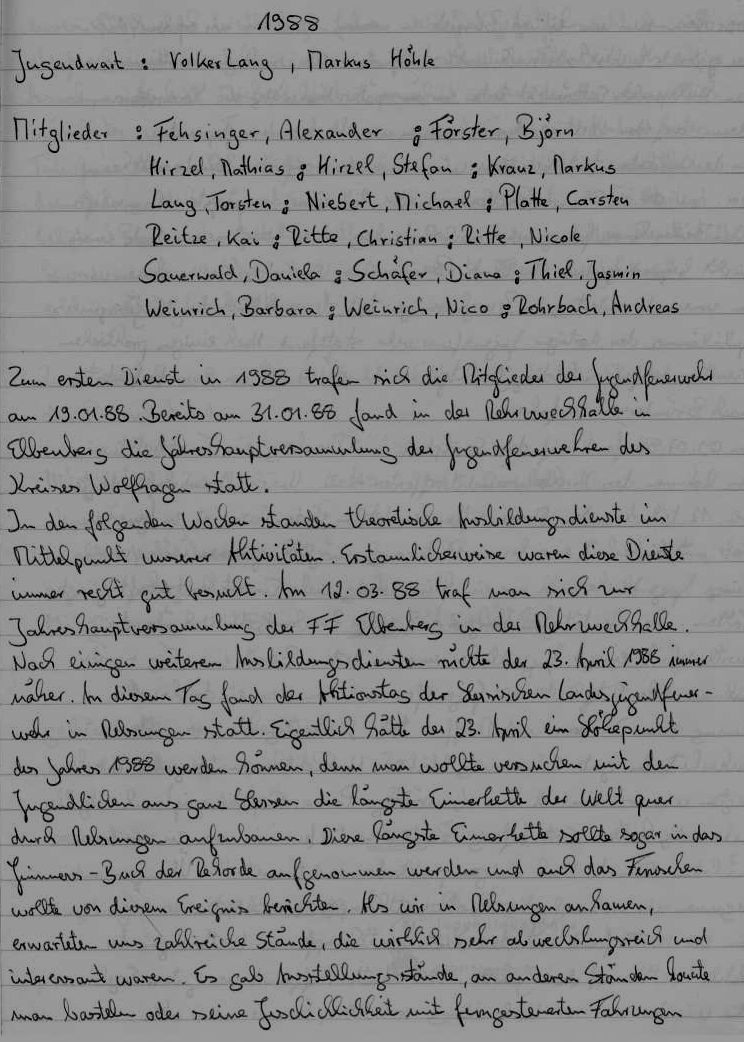 1988
Jugendwart : Volker Lang , Markus Höhle
Mitglieder : Fehsinger, Alexander ; Förster, Björn
Hirzel, Mathias ; Hirzel, Stefan ; Kranz, Markus
Lang, Torsten ; Niebert, Michael ; Platte, Carsten
Reitze, Kai ; Ritte, Christian ; Ritte, Nicole
Sauerwald, Daniela ; Schäfer, Diana ; Thiel, Jasmin
Weinrich, Barbara ; Weinrich, Nico ; Rohrbach, Andreas
Zum ersten Dienst in 1988 trafen sich die Mitglieder der Jugendfeuerwehr
am 19.01.88. Bereits am 31.01.88 fand in der Mehrzweckhalle in
Elbenberg die Jahreshauptversammlung der Jugendfeuerwehren des
Kreises Wolfhagen statt.
In den folgenden Wochen standen theoretische Ausbildungsdienste im
Mittelpunkt unserer Aktivitäten. Erstaunlicherweise waren diese Dienste
immer recht gut besucht. Am 12.03.88 traf man sich zur
Jahreshauptversammlung der FF Elbenberg in der Mehrzweckhalle.
Nach einigen weiteren Ausbildungsdiensten rückte der 23. April 1988 immer
näher. An diesem Tag fand der Aktionstag der Hessischen Landesjugendfeuer-
wehr in Melsungen statt. Eigentlich hätte der 23. April ein Höhepunkt
des Jahres 1988 werden können, denn man wollte versuchen mit den
Jugendlichen aus ganz Hessen die längste Eimerkette der Welt quer
durch Melsungen aufzubauen. Diese längste Eimerkette sollte sogar in das
Guinness-Buch der Rekorde aufgenommen werden und auch das Fernsehen
wollte von diesem Ereignis berichten. Als wir in Melsungen ankamen,
erwarteten uns zahlreiche Stände, die wirklich sehr abwechslungsreich und
interessant waren. Es gab Ausstellungsstände, an anderen Ständen konnte
man basteln oder seine Geschicklichkeit mit ferngesteuerten Fahrzeugen